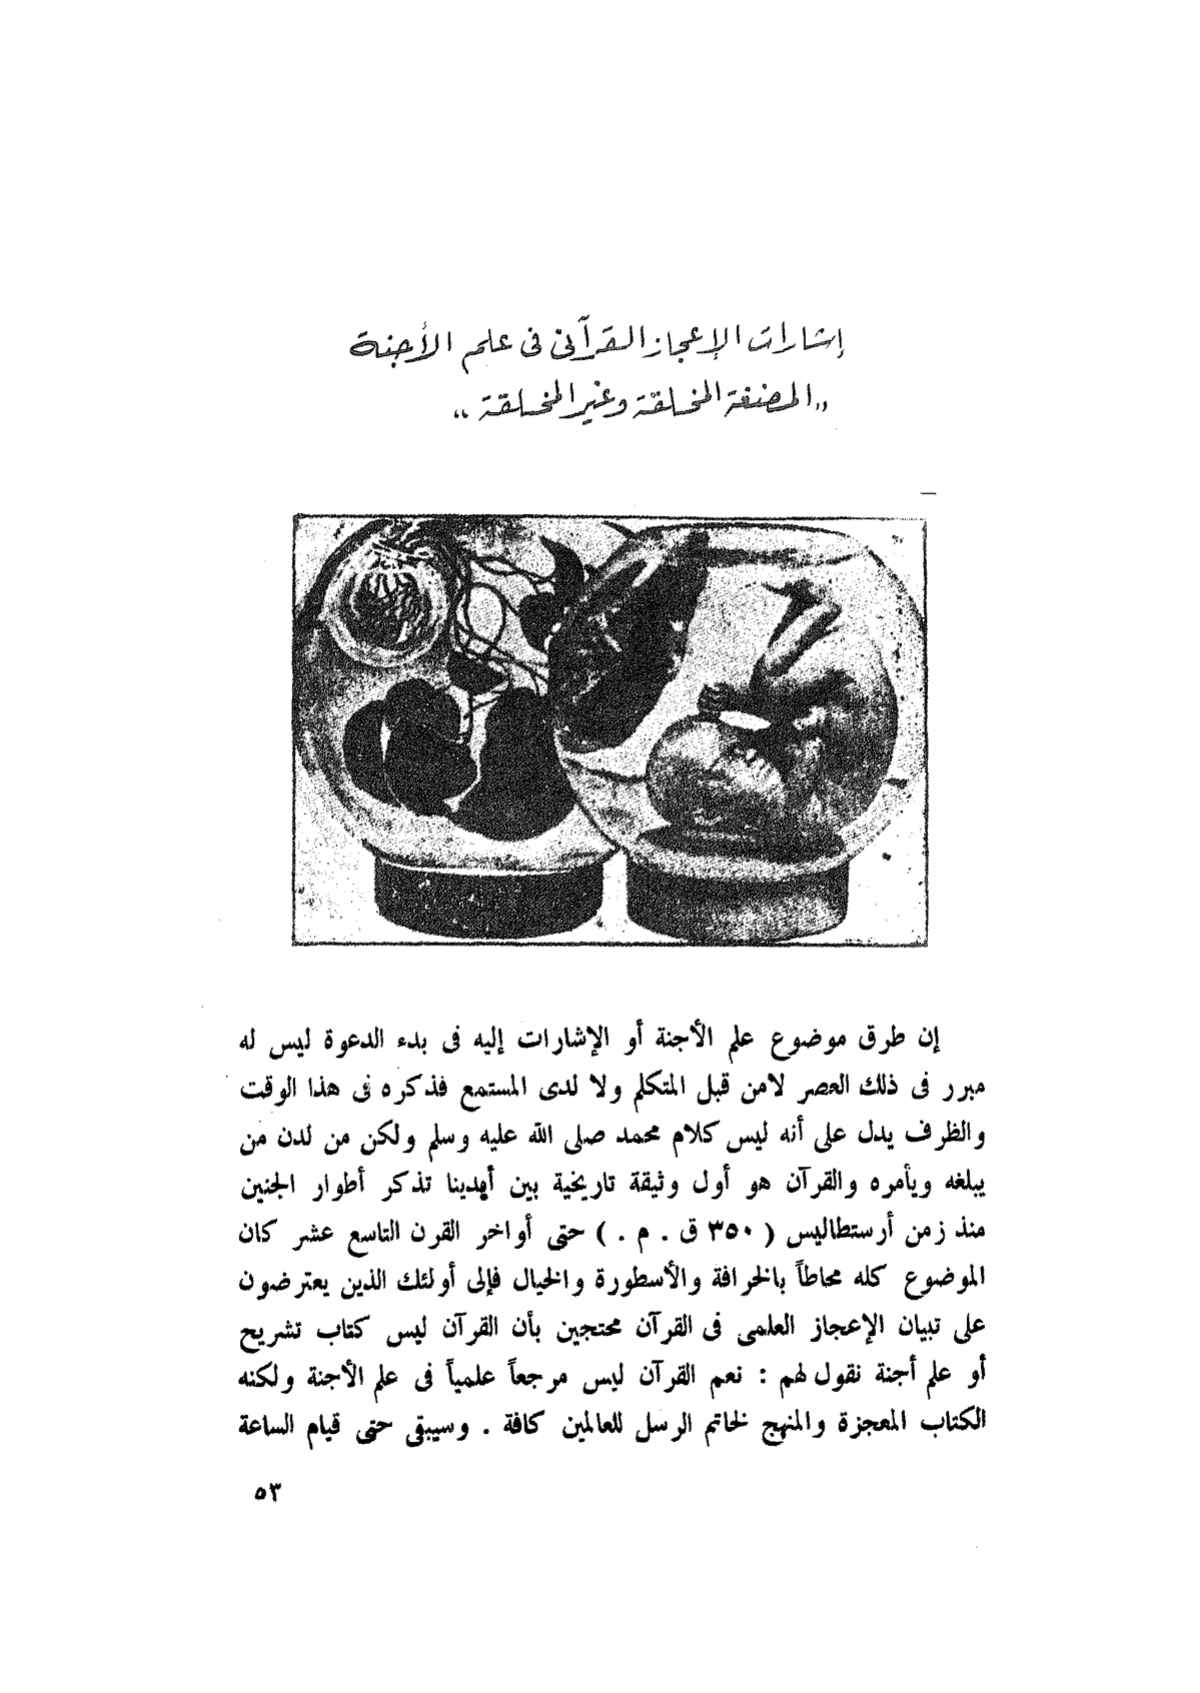 إشارات الإعجاز القرآنى فى علم الأجنة
„المضغة المخلقة وغير المخلقة“
إن طرق موضوع علم الأجنة أو الإشارات إليه فى بدء الدعوة ليس له
مبرر فى ذلك العصر لامن قبل المتكلم ولا لدى المستمع فذكره فى هذا الوقت
والظرف يدل على أنه ليس كلام محمد صلى الله عليه وسلم ولكن من لدن من
يبلغه ويأمره والقرآن هو أول وثيقة تاريخية بين أيدينا تذكر أطوار الجنين
منذ زمن أرستطاليس ( ٣٥٠ ق . م . ) حتى أواخر القرن التاسع عشر كان
الموضوع كله محاطاً بالخرافة والأسطورة والخيال فإلى أولئك الذين يعترضون
على تبيان الإعجاز العلمى فى القرآن محتجين بأن القرآن ليس كتاب تشريح
أو علم أجنة نقول لهم : نعم القرآن ليس مرجعاً علمياً فى علم الأجنة ولكنه
الكتاب المعجزة والمنهج لخاتم الرسل للعالمين كافة . وسيبقى حتى قيام الساعة
٥٣